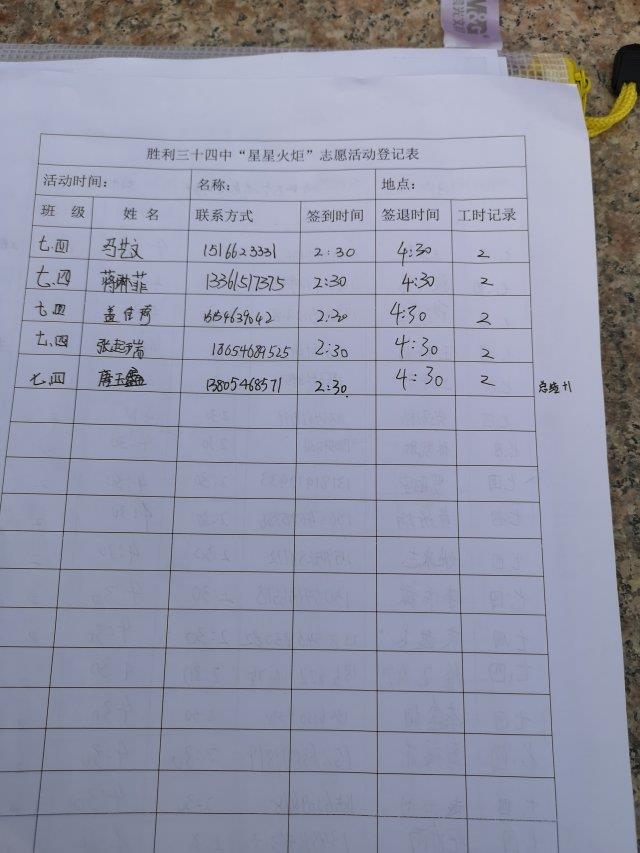 胜利三十四中“星星火炬”志愿活动登记表
活动时间： 名称： 地点：
班 级 姓 名 联系方式 签到时间 签退时间 工时记录
七.四 马艺文 1516623331 2:30 4:30 2
七.四 菲 13361517375 2:30 4:30 2
七四 盖佳 2:30 4:30 2
七.四 张起瑞 18654689525 2:30 4:30 2
七.四 唐玉鑫 13805468571 2:30 4:30 2 总结+1